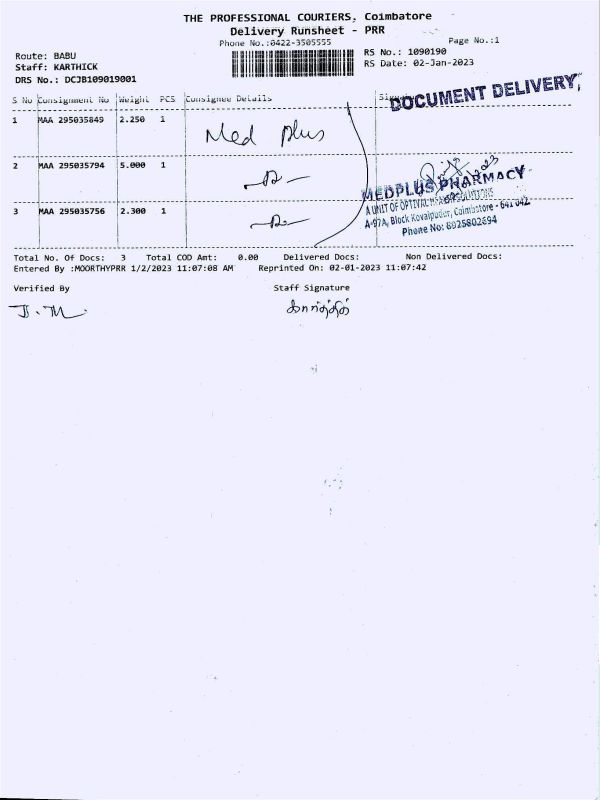 THE PROFESSIONAL COURIERS, Coimbatore
Delivery Runsheet - PRR
Phone No.:0422-3505555
Page No.:1
Route: BABU
RS No.: 1090190
Staff: KARTHICK
RS Date: 02-Jan-2023
DRS No.: DCJB109019001
S No Consignment No Weight PCS Consignee Details
DOCUMENT DELIVERY,
1 MAA 295035849 2.250 1 Med plus
2 MAA 295035794 5.000 1
MEDPLUS PHARMACY
A UNIT OF OPTIVAL HEALTH SOLUTIONS
3 MAA 295035756 2.300 1
A-97A, Block Kovaipudur, Coimbatore - 641 042.
Phone No: 8925802694
Total No. Of Docs: 3 Total COD Amt: 0.00 Delivered Docs: Non Delivered Docs:
Entered By :MOORTHYPRR 1/2/2023 11:07:08 AM Reprinted On: 02-01-2023 11:07:42
Verified By Staff Signature
கார்த்திக்